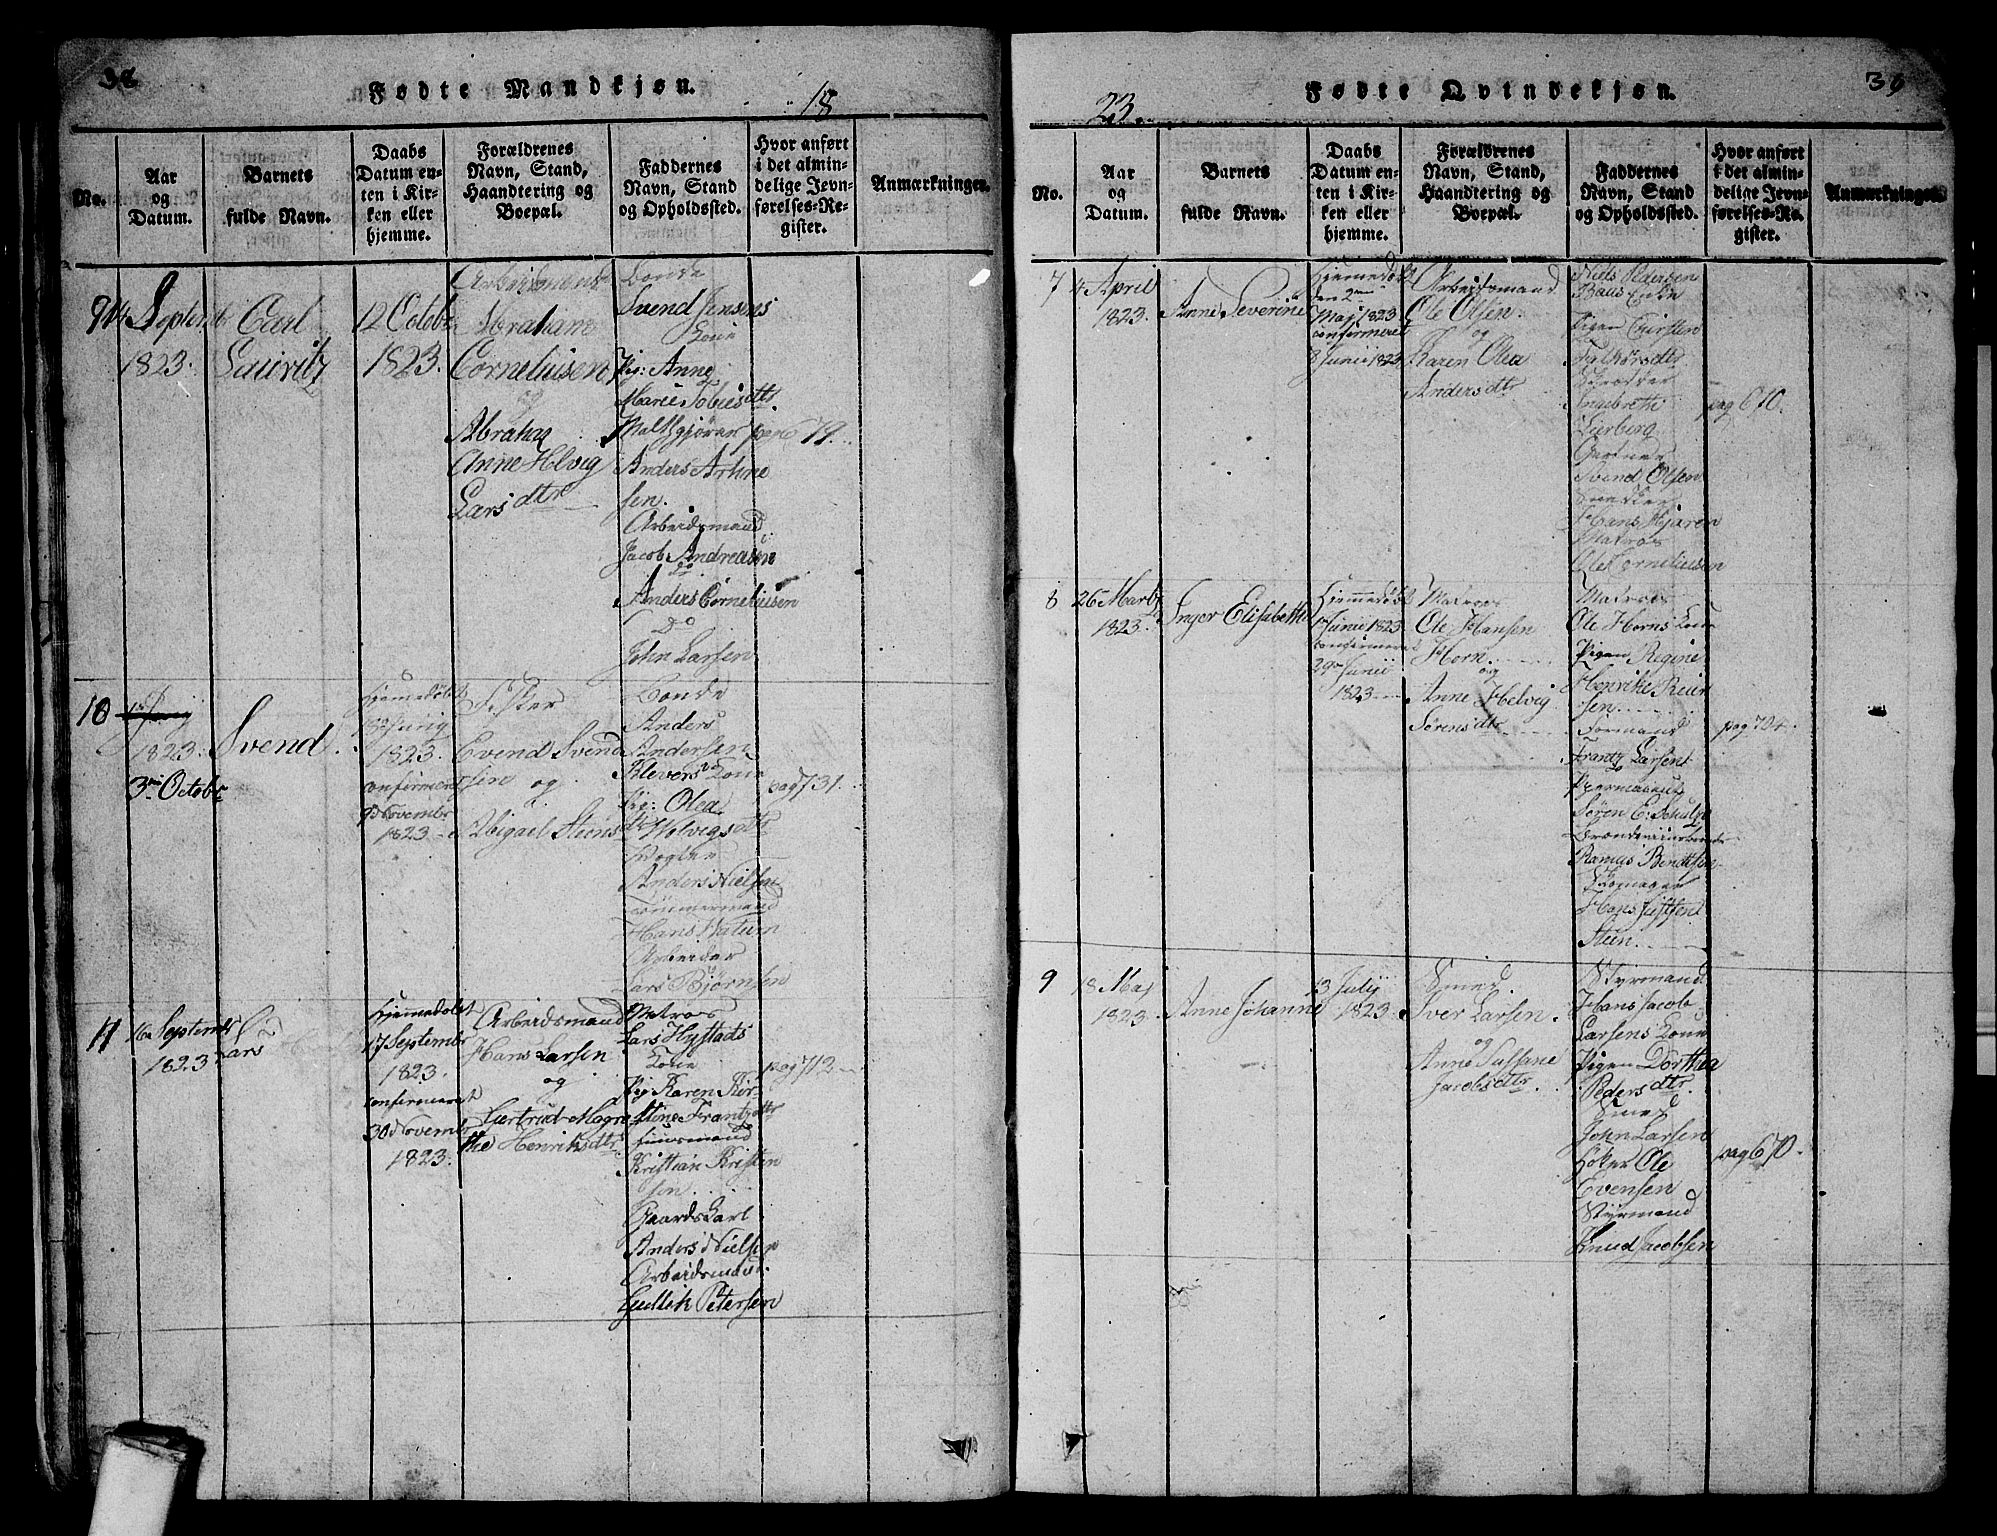 38
Fødte Mandkjøn.
18
No.
Aar
og
Datum.
Barnets
fulde Navn.
Daabs
Datum en-
ten i Kir-
ken eller
hjemme.
Forældrenes
Navn, Stand,
Haandtering og
Boepæl.
Faddernes
Navn, Stand
og Opholdssted.
Hvor anført
i det almin-
delige Jevn-
førelses-Re-
gister.
Anmærkninger.
9
14 Septembr
1823.
Carl
Lauritz
12 Octobr
1823.
Arbeidsmand
Abraham
Corneliusen
og
Abraham
Anne Helvig
Lars dtr
Bonde
Svend Jensens
Kone
Pig: Anne
Marie Tobiesdtr
Maltgjører
Anders Arhne
sen.
Arbeidsmand
Jacob Andreasen
do
Anders Corneliusen
Do
John Larsen
79
10
1823.
3die Octobr
Svend
Hjemedøbt
1823.
confirmeret
9 Novembr
1823
Fisker
Evend Svend
sen og
Abigael Steens
dtr
Bonde
Anders
Andersen
Klevers Kone
Pig: Olea
Helvigsdtr
Anders Nielsen
Tømmermand
Hans Natum
Arbeider
Lars Bjørnsen
pag 731.
11
16 Septembr
1823
Lars
Hjemmedøbt
17 Septembr
1823.
confirmeret
30 Novembr
1823.
Arbeidsmand
Hans Larsen
og
Gertrud Magre
the Henriksdtr
Matros
Lars Hystads
Kone
Pig: Karen Kir-
stine Frantzdtr
Huusmand
Kristian Kristen
sen
Gaardskarl
Anders Nielsen
Arbeidsmand.
Gullik Petersen
pag 712
39
Fødte Qvindekjøn.
23.
No.
Aar
og
Datum.
Barnets
fulde Navn.
Daabs
Datum en-
ten i Kir-
ken eller
hjemme.
Forældrenes
Navn, Stand,
Haandtering og
Boepæl.
Faddernes
Navn, Stand
og Opholdssted.
Hvor anført
i det almin-
delige Jevn-
førelses-Re-
gister.
Anmærkninger.
7
4 April
1823.
Anne Severine
Hjemedøbt
den 2den
Maj 1823
confirmeret
8 Junii 1823
Arbeidsmand
Ole Olsen.
og
Karen Olea
Andersdtr
Niels Pedersen
Baus Enke
Pigen Kirsten
Falkorsdtr
Skrædder
Ingebreth
Lierberg
Gartner
Svend Olsen
Snedker
Hans Kjæren
Matros
Ole Corneliusen
pag 670.
8
26 Martz
1823.
Inger Elisabeth
Hjemmedøbt
1 Junii 1823
confirmeret
29 Junii
1823
Matros
Ole Hansen
Horn.
og
Anne Helvig
Sørensdtr
Matros
Ole Horns Kone
Pigen Regine
Henrike Reier
sen
Formand
Frantz Larsen
Søren E: Schulze
Rasmus Bendtsen
Skomager
Hans Justsen
Steen
pag 724.
9
18 Maj
1823.
Anne Johanne
13 Julij
1823
Smed.
Iver Larsen.
og
Anne Sussane
Jacobsdtr.
Styrmand
Hans Jacob
Larsens Kone
Pigen Dorthea
Pedersdtr.
Smed
John Larsen
Høker Ole
Evensen
Styrmand
Knud Jacobsen
pag 670.